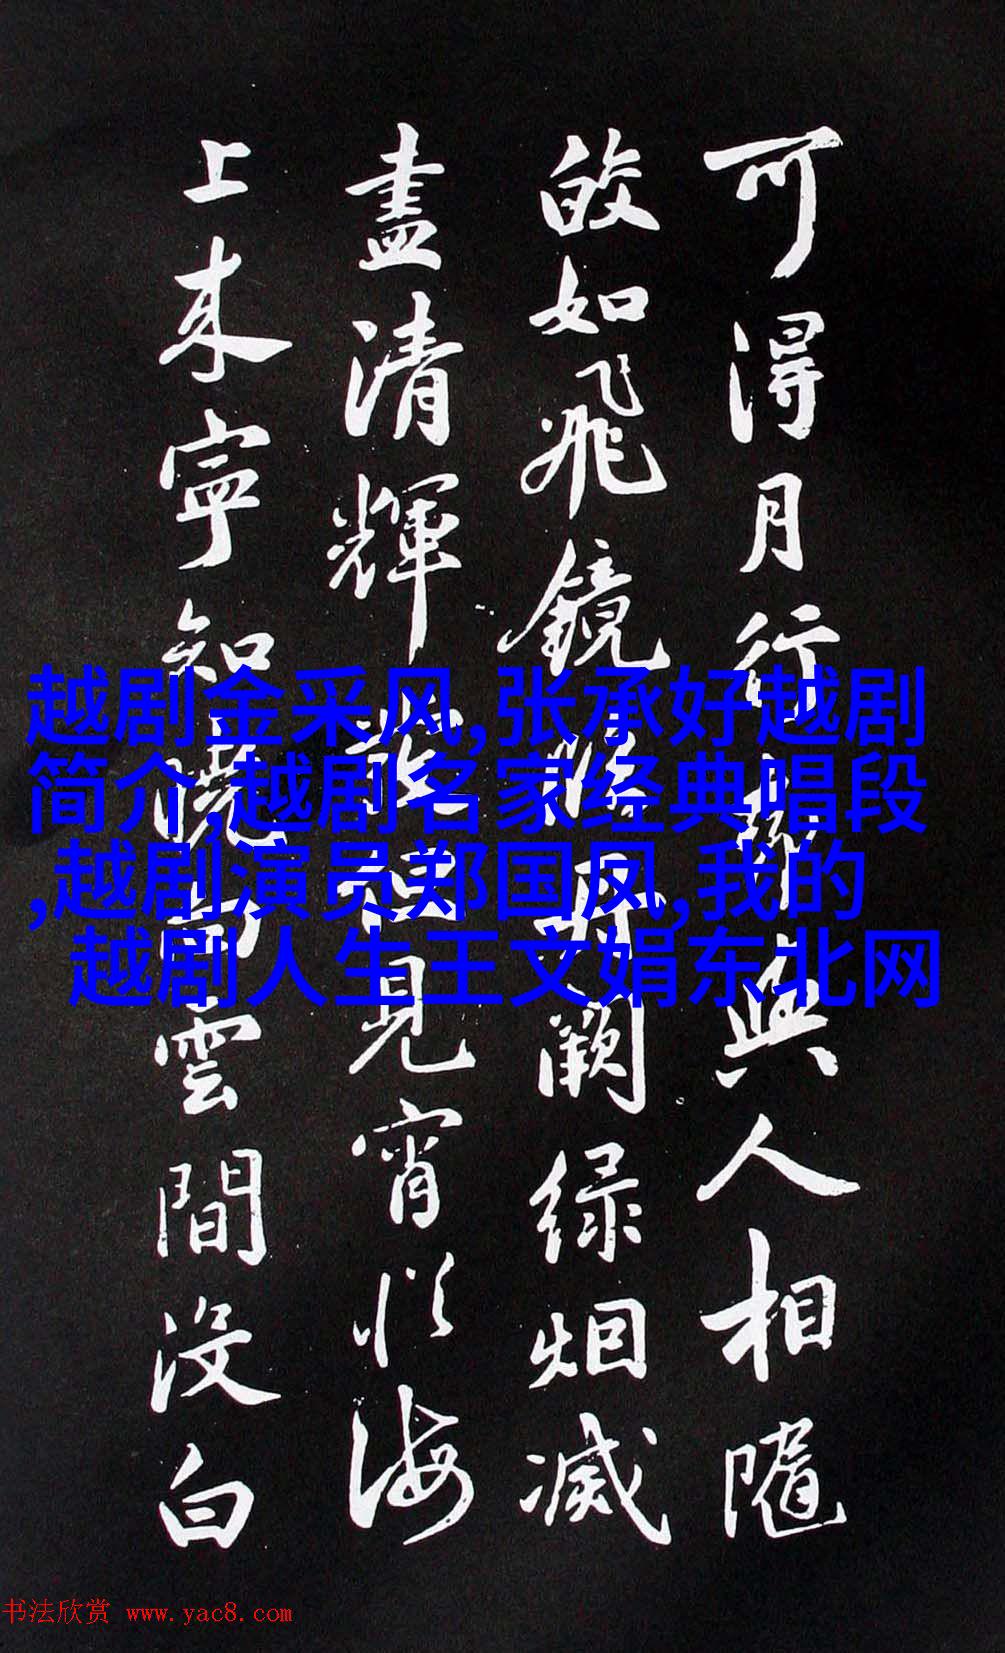 可得月行與人相隨
皎如飛鏡臨丹闕绿烟滅
盡清輝發但見宵從海
上来寧知曉向雲間没白
越剧金采风,张承好越剧
简介,越剧名家经典唱段
,越剧演员郑国凤,我的
越剧人生王文娟东北网
书法欣赏 www.yac8.com